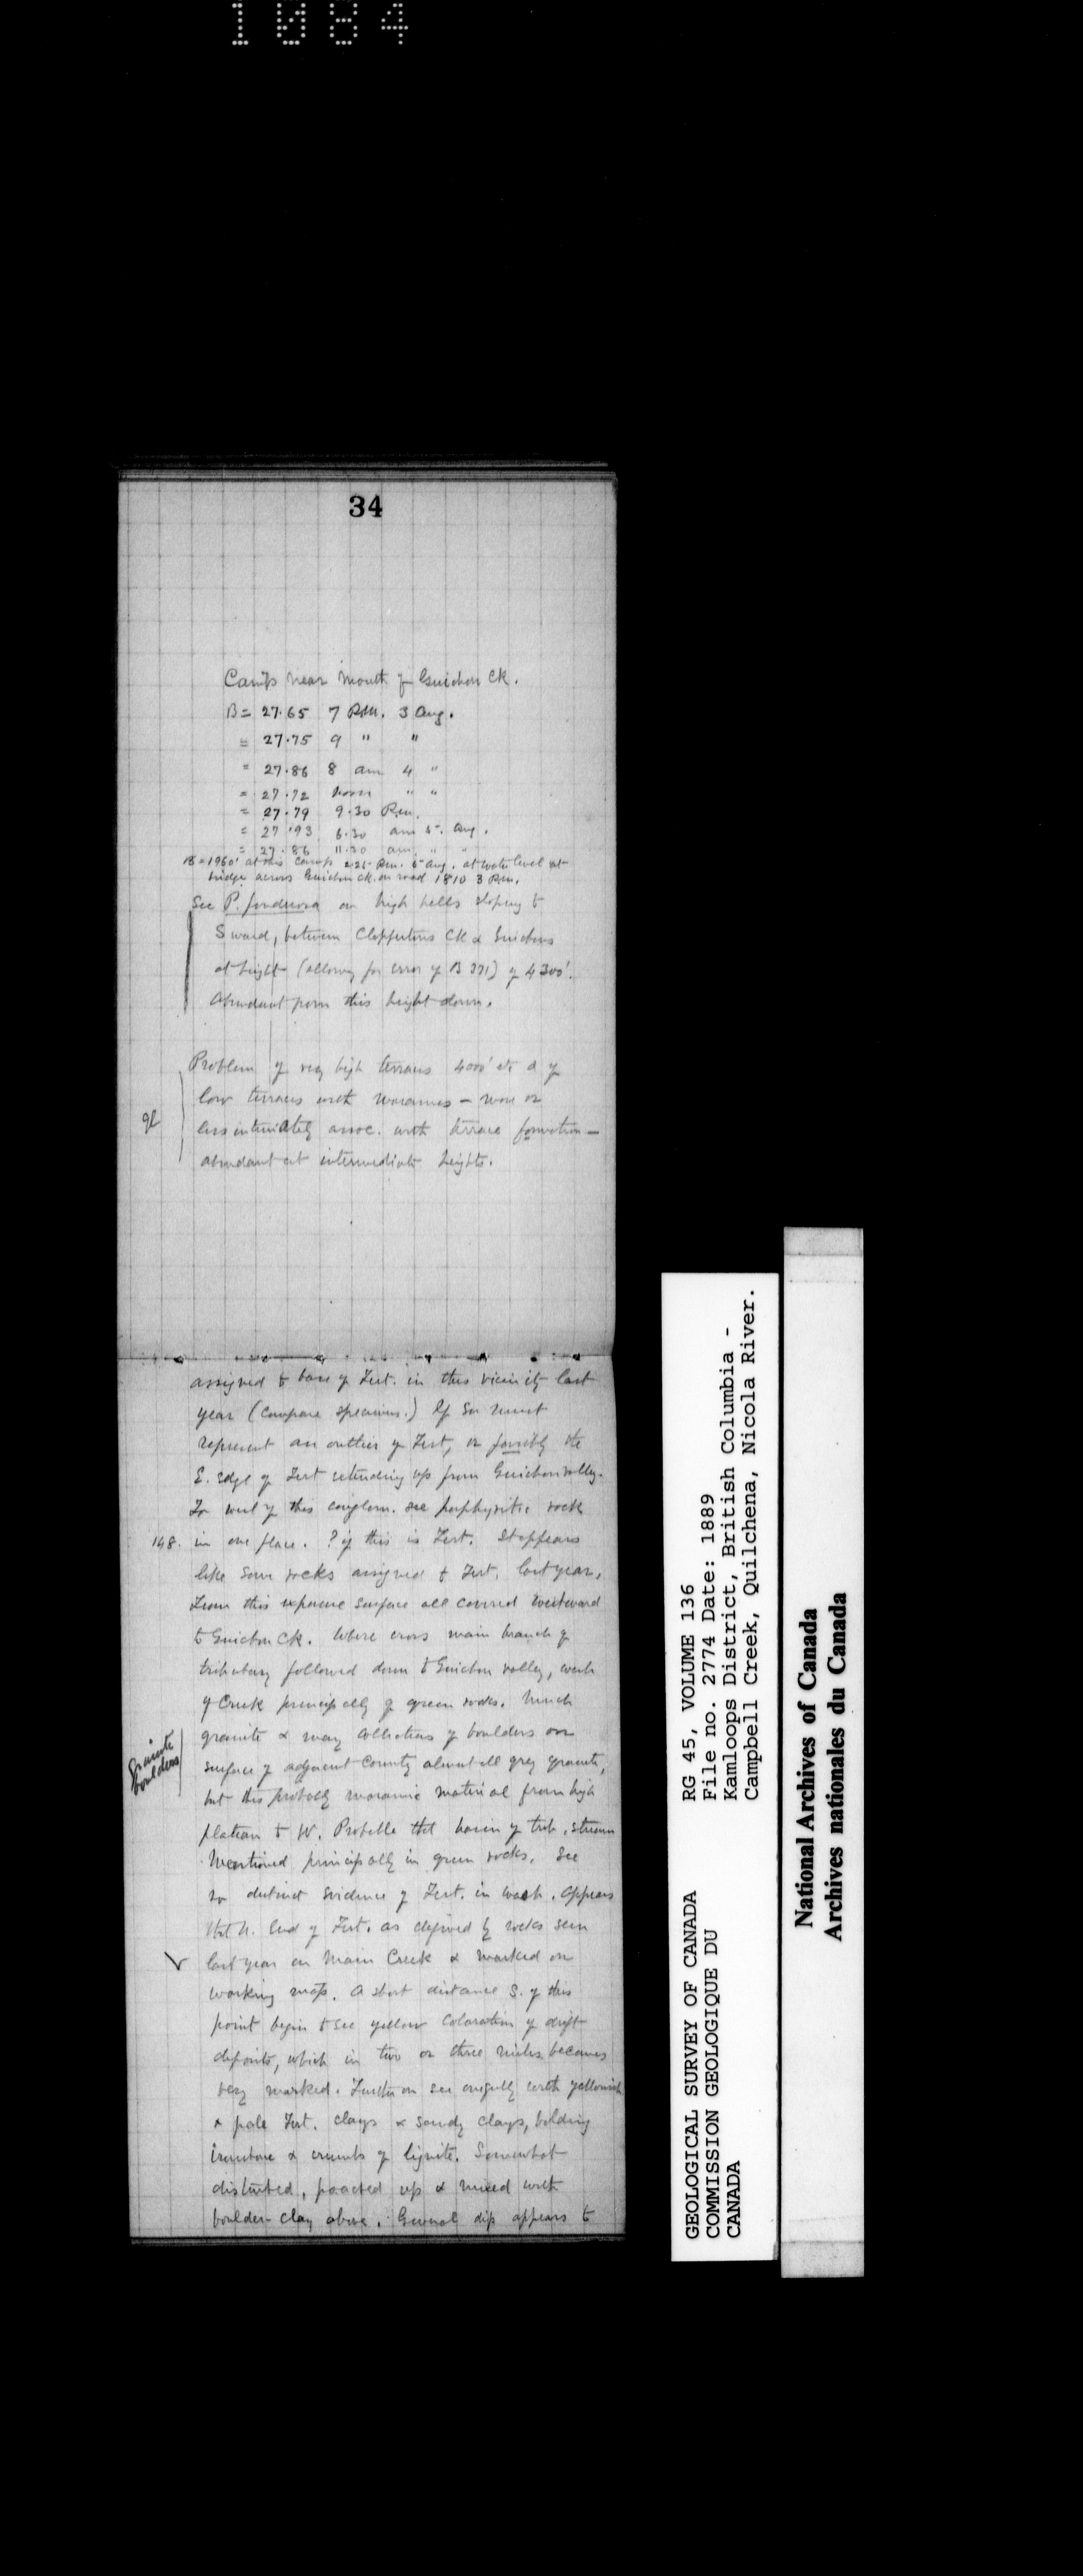 1084
34
Camp near mouth of Guichon Ck.
B = 27.65 7 P.m. 3 Aug.
= 27.75 9 " "
= 27.86 8 am 4 "
= 27.72 noon " "
= 27.79 9.30 P.m.
= 27.93 6.30 am 5. Aug.
= 27.86 11.30 am. " "
B = 1960' at this camp 2.25 P.m. 5 Aug. at water level at
bridge across Guichon Ck. on road 1810 3 P.m.
See P. ponderosa on high hills sloping to
S ward, between Clapperton Ck & Guichons
at height (allowing for error of B ) of 4300'.
Abundant from this height down.
Problem of very high terraces 4000' etc & of
low terraces with moraines – more or
less intimately assoc. with terrace formation –
abundant at intermediate heights.
gl
assigned to base of Tert. in this vicinity last
year (compare specimens.) If so must
represent an outlier of Tert, or possibly the
E. edge of Tert extending up from Guichon valley.
To west of this conglom. see porphyritic rock
148. in one place. ? if this is Tert. It appears
like some rocks assigned to Tert. last year.
From this exposure surface all covered westward
to Guichon Ck. Where cross main branch of
tributary followed down to Guichon valley, wash
of Creek principally of green rocks. Much
granite & many collections of boulders on
Granite
boulders
surface of adjacent County almost all grey granite,
but this probably morainic material from high
plateau to W. Probable that basin of trib. stream
mentioned principally in green rocks. See
no distinct evidence of Tert. in wash. Appears
that N. end of Tert. as defined by rocks seen
last year on Main Creek & marked on
working map. A short distance S. of this
point begin to see yellow coloration of drift
deposits, which in two or three miles becomes
very marked. Further on see a gully with yellowish
& pale Tert. clays & sandy clays, holding
ironstone & crumbs of lignite. Somewhat
disturbed, up & mixed with
boulder-clay above. General dip appears to
GEOLOGICAL SURVEY OF CANADA
COMMISSION GEOLOGIQUE DU
CANADA
RG 45, VOLUME 136
File no. 2774 Date: 1889
Kamloops District, British Columbia -
Campbell Creek, Quilchena, Nicola River.
National Archives of Canada
Archives nationales du Canada